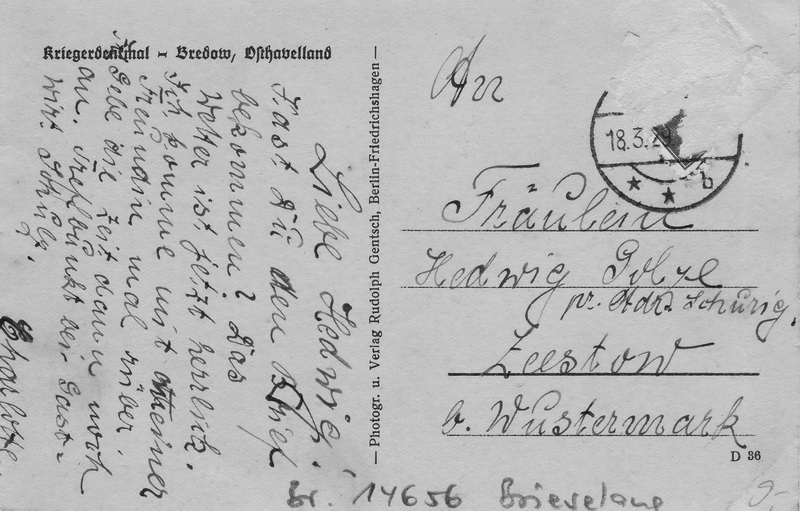 Kriegerdenkmal - Bredow, Osthavelland
Liebe Hedwig!
Hast Du den Brief
bekommen? Das
Wetter ist jetzt herrlich.
Ich komme mit meiner
Freundin mal rüber.
Gebe die Zeit dann noch
an. Treffpunkt bei Gast-
wirt Schulz.
Charlotte.
— Photogr. u. Verlag Rudolph Gentsch, Berlin-Friedrichshagen —
An
18.3.
b
Fräulein
Hedwig
pr. Adr. Schurig,
Zeestow
b. Wustermark
D 36
Br. 14656 Brieselang